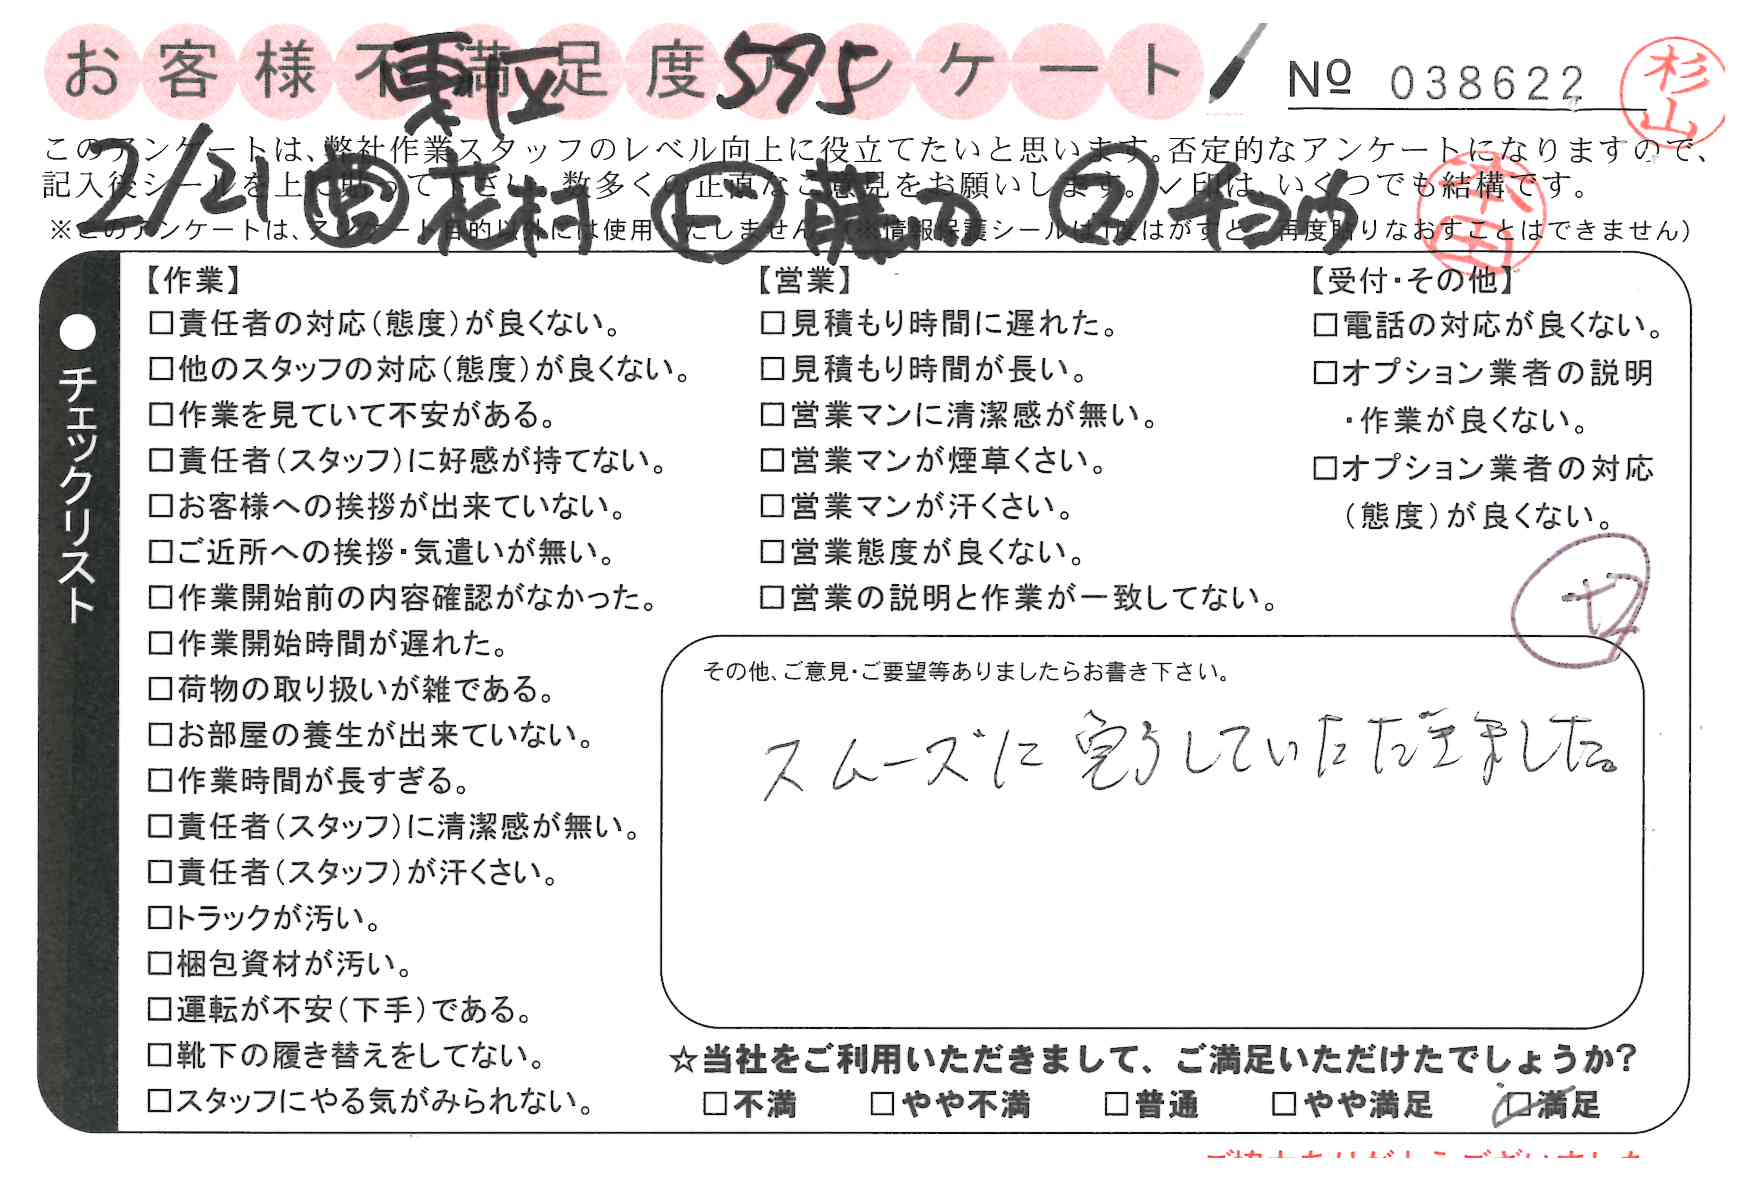 お客様不満足度アンケート
東区 595
No 038622
杉山
このアンケートは、弊社作業スタッフのレベル向上に役立てたいと思います。否定的なアンケートになりますので、
記入後シールを上に貼って下さい。数多くの正直なご意見をお願いします。✓印は、いくつでも結構です。
2/21 花村 ト 藤田 ス チョウ
※このアンケートは、アンケート目的以外には使用いたしません。(※情報保護シールは1度はがすと、再度貼りなおすことはできません)
●チェックリスト
【作業】
□責任者の対応(態度)が良くない。
□他のスタッフの対応(態度)が良くない。
□作業を見ていて不安がある。
□責任者(スタッフ)に好感が持てない。
□お客様への挨拶が出来ていない。
□ご近所への挨拶・気遣いが無い。
□作業開始前の内容確認がなかった。
□作業開始時間が遅れた。
□荷物の取り扱いが雑である。
□お部屋の養生が出来ていない。
□作業時間が長すぎる。
□責任者(スタッフ)に清潔感が無い。
□責任者(スタッフ)が汗くさい。
□トラックが汚い。
□梱包資材が汚い。
□運転が不安(下手)である。
□靴下の履き替えをしてない。
□スタッフにやる気がみられない。
【営業】
□見積もり時間に遅れた。
□見積もり時間が長い。
□営業マンに清潔感が無い。
□営業マンが煙草くさい。
□営業マンが汗くさい。
□営業態度が良くない。
□営業の説明と作業が一致してない。
【受付・その他】
□電話の対応が良くない。
□オプション業者の説明
・作業が良くない。
□オプション業者の対応
(態度)が良くない。
その他、ご意見・ご要望等ありましたらお書き下さい。
スムーズに完了していただきました。
☆当社をご利用いただきまして、ご満足いただけたでしょうか?
□不満 □やや不満 □普通 □やや満足 ☑満足
ご協力ありがとうございました